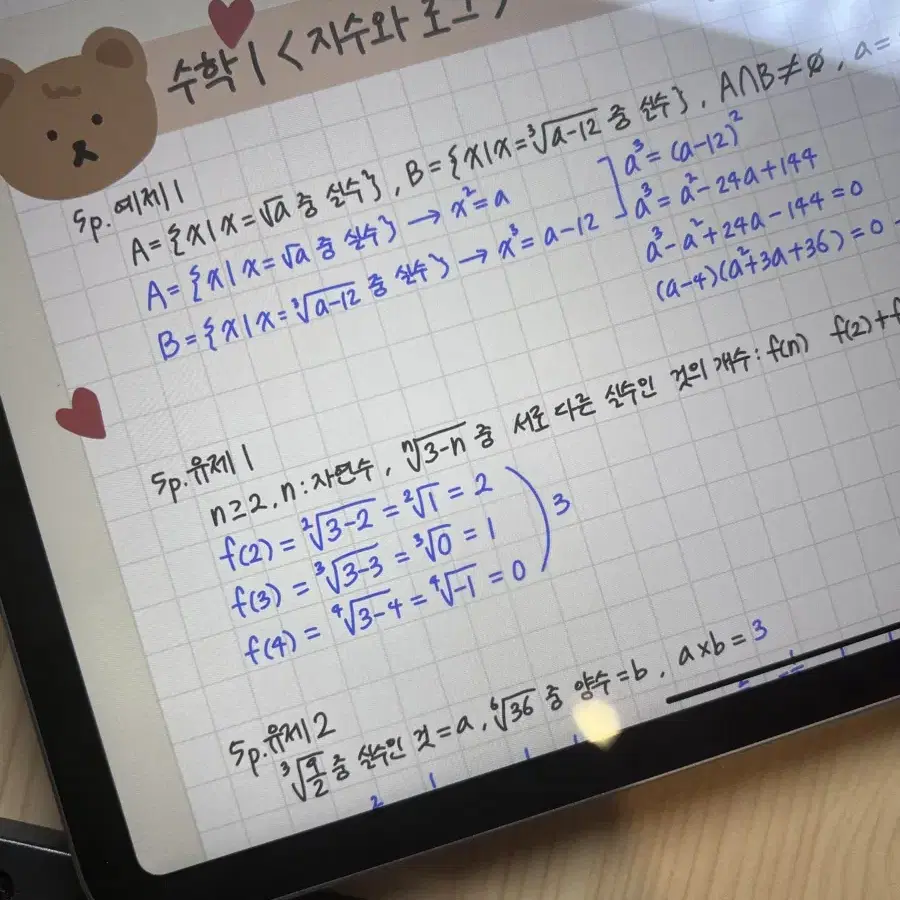 수학 I < 지수와 로그 >
5p. 예제 1
A = {x | x = √a 중 실수}, B = {x | x = ³√(a-12) 중 실수}, A∩B ≠ ∅, a =
A = {x | x = √a 중 실수} → x² = a
B = {x | x = ³√(a-12) 중 실수} → x³ = a-12
a³ = (a-12)²
a³ = a² - 24a + 144
a³ - a² + 24a - 144 = 0
(a-4)(a² + 3a + 36) = 0
5p. 유제 1
n ≥ 2, n : 자연수, ⁿ√(3-n) 중 서로 다른 실수인 것의 개수 : f(n) f(2) + f
f(2) = ²√(3-2) = ²√1 = 2
f(3) = ³√(3-3) = ³√0 = 1
f(4) = ⁴√(3-4) = ⁴√-1 = 0
3
5p. 유제 2
³√(9/2) 중 실수인 것 = a, ⁶√36 중 양수 = b, a×b = 3